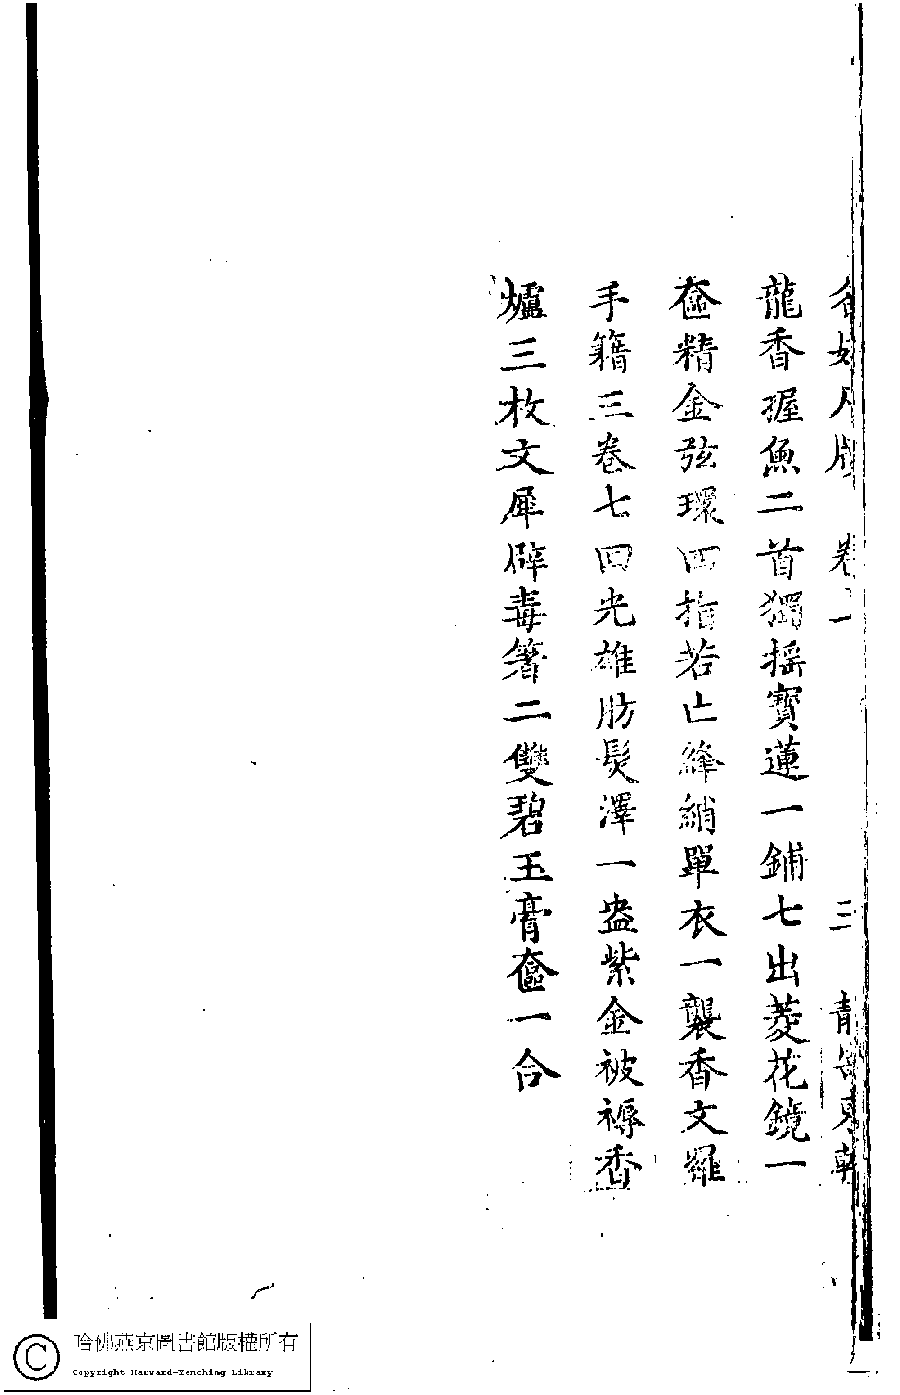 卷
三
龍香握魚二首獨搖寶蓮一鋪七出菱花鏡一
奩精金弦環四指若亡絳綃單衣一襲香文羅
手籍三卷七回光雄肪髮澤一盎紫金被褥香
爐三枚文犀辟毒箸二雙碧玉膏奩一合
哈佛燕京圖書館版權所有
Copyright Harvard-Yenching Library